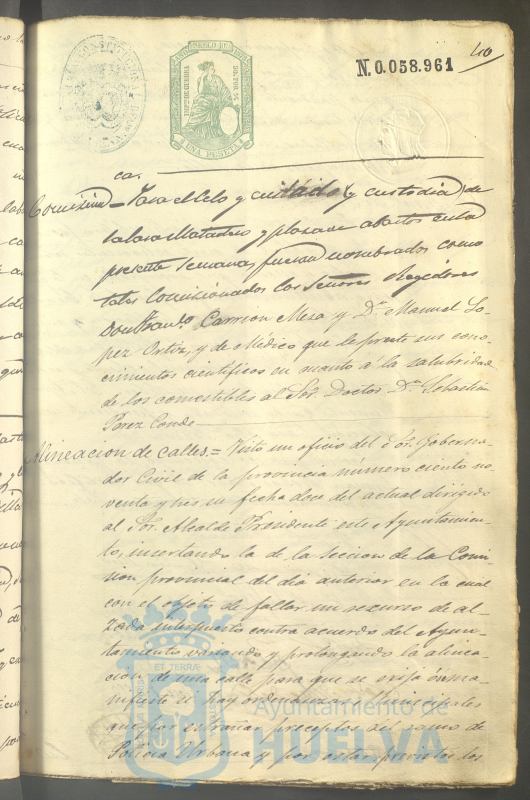 N. 0.058.961
40
UNA PESETA
ca.
Comisión = Para el celo y cuidado (y custodia) de
la casa Matadero y plaza de abastos en la
presente semana, fueron nombrados como
tales Comisionados los Señores Regidores
Don Franco. Carrion Mesa y Dn. Manuel Lo-
pez Ortiz, y de Médico que le preste sus cono-
cimientos científicos en cuanto á la salubridad
de los comestibles al Sor. Doctor Dn. Sebastian
Perez Conde
Alineacion de calles. = Visto un oficio del Sor. Goberna-
dor Civil de la provincia número ciento no-
venta y tres su fecha doce del actual dirigido
al Sor. Alcalde Presidente este Ayuntamien-
to, insertando la de la Seccion de la Comi-
sion provincial del dia anterior en la cual
con el objeto de fallar un recurso de al-
zada interpuesto contra acuerdo del Ayun-
tamiento variando y prolongando la aline-
ación de una calle para que se exija ó ma-
nifieste si hay ordenanzas Municipales
que entrañan preceptos del ramo de
Policia Urbana y por estar previstos los
ET TERRÆ
Ayuntamiento de
HUELVA